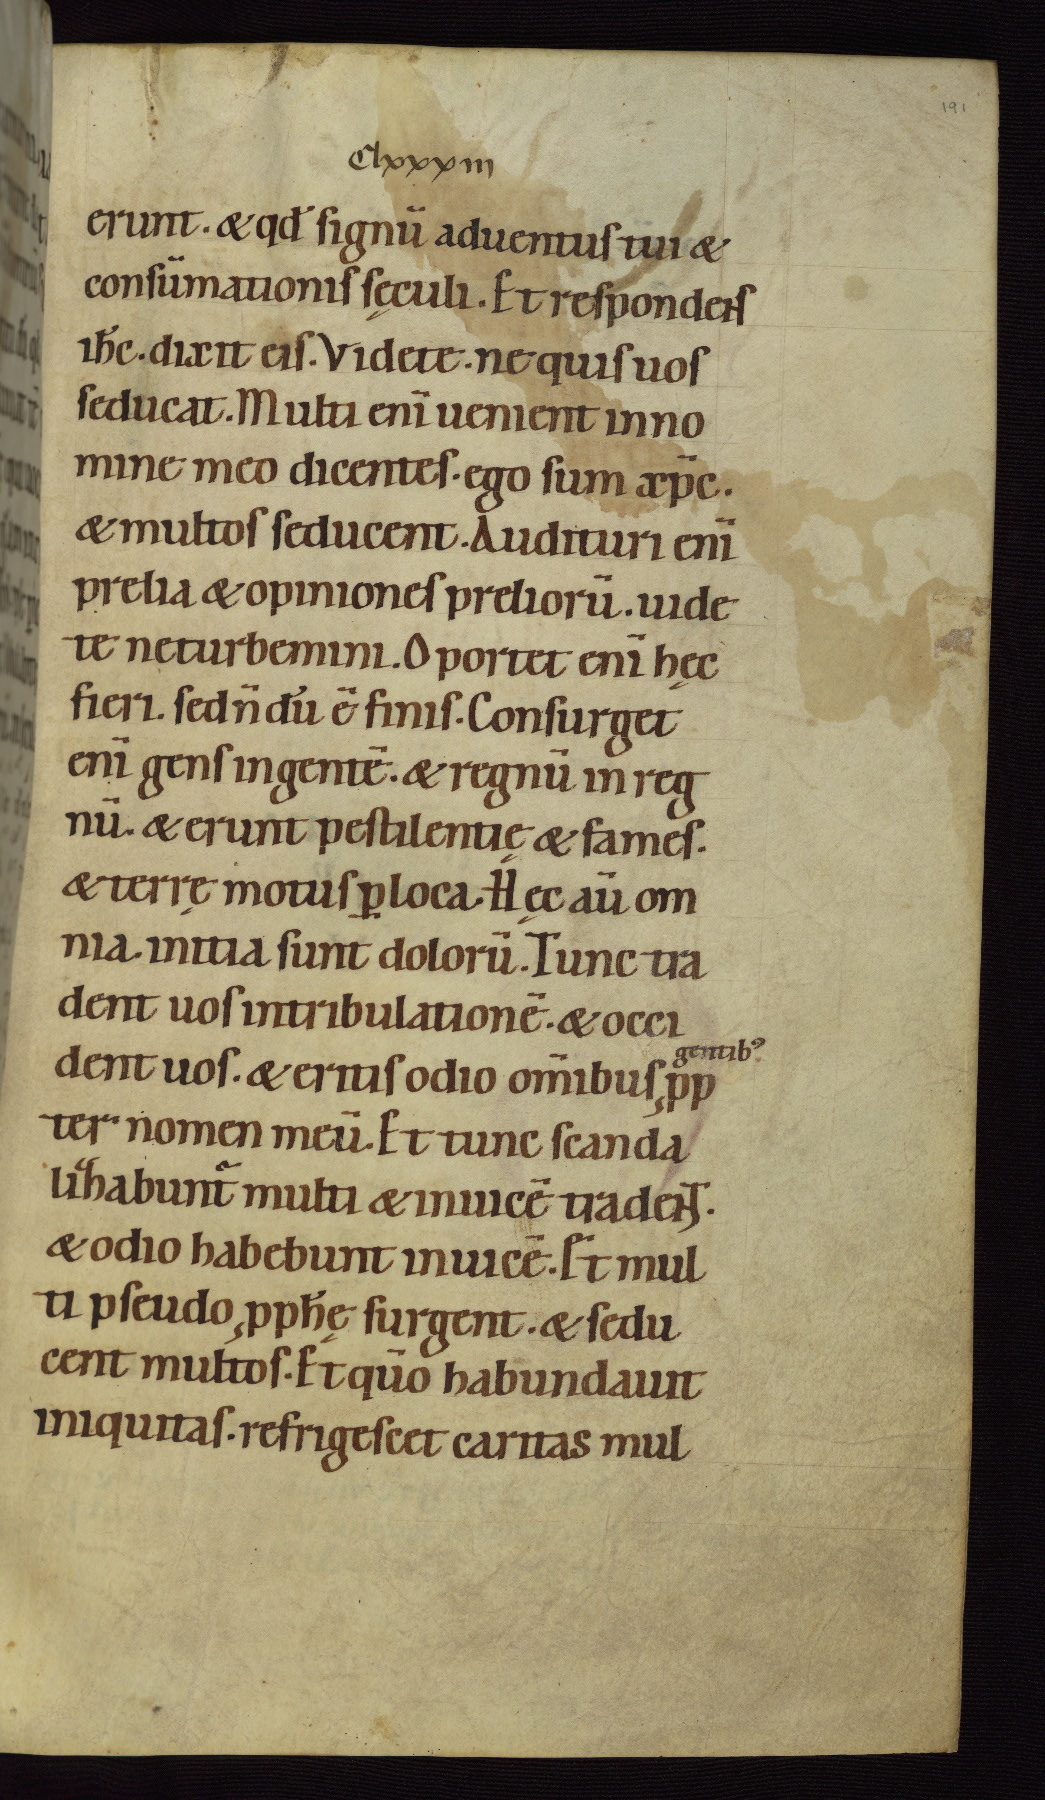 191
Clxxxiii
erunt. & qđ signū aduentus tui &
consūmationis sęculi. Et respondens
ihc̄. dixit eis. Videte. ne quis uos
seducat. Multi enī uenient inno
mine meo dicentes. ego sum xp̄c.
& multos seducent. Audituri enī
prelia & opiniones preliorū. uide
te neturbemini. Oportet enī hęc
fieri. sed n̄ dū ē finis. Consurget
enī gens ingentē. & regnū in reg
nū. & erunt pestilentię & fames.
& terrę motus ꝑ loca. Hęc aū om
nia. initia sunt dolorū. Tunc tra
dent uos intribulationē. & occi
dent uos. & eritis odio om̄ibus gentibꝰ ꝓp
ter nomen meū. Et tunc scanda
lihabunt̄ multi & inuicē tradent.
& odio habebunt inuicē. Et mul
ti pseudo ꝓph̄ę surgent. & sedu
cent multos. Et qūo habundauit
iniquitas. refrigescet caritas mul